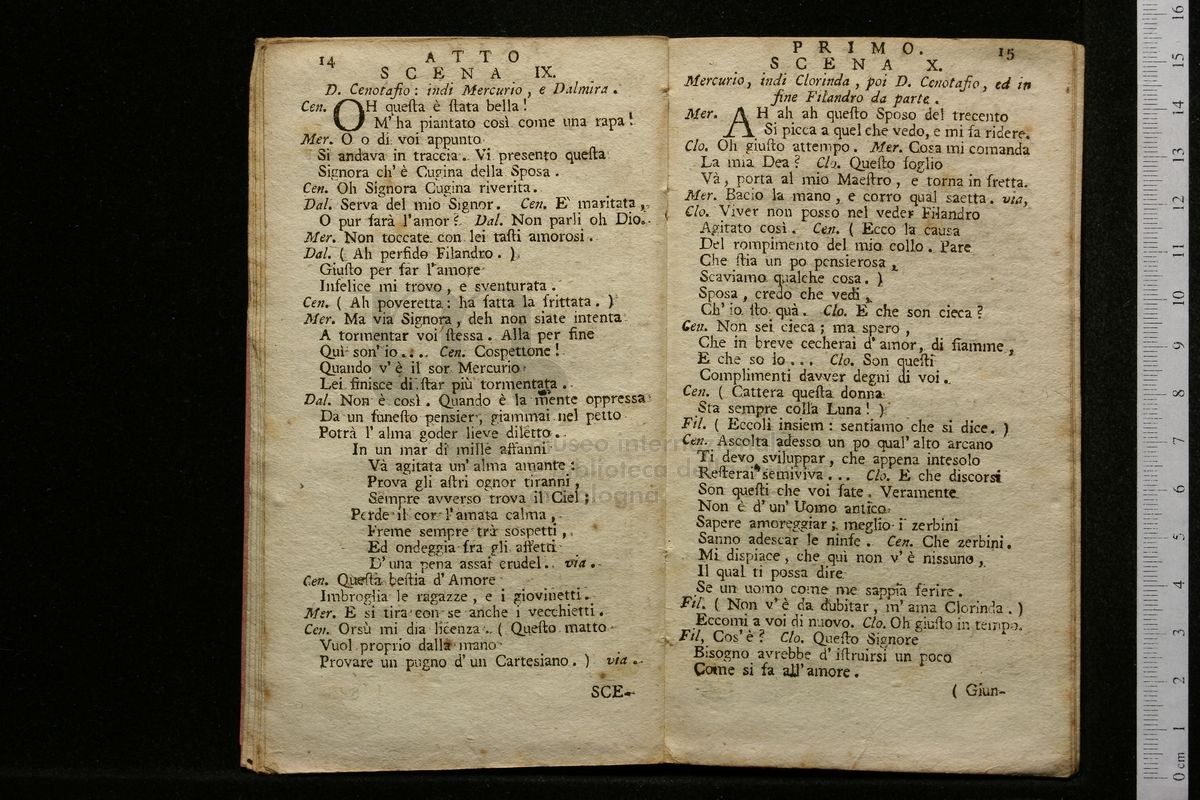 14
ATTO
SCENA IX.
D. Cenotafio: indi Mercurio, e Dalmira.
Cen. OH queſta è ſtata bella!
M'ha piantato così come una rapa!
Mer. O o di voi appunto
Si andava in traccia. Vi preſento queſta
Signora ch'è Cugina della Spoſa.
Cen. Oh Signora Cugina riverita.
Dal. Serva del mio Signor. Cen. E' maritata,
O pur farà l'amor? Dal. Non parli oh Dio.
Mer. Non toccate con lei taſti amoroſi.
Dal. ( Ah perfido Filandro. )
Giuſto per far l'amore
Infelice mi trovo, e sventurata.
Cen. ( Ah poveretta: ha fatta la frittata. )
Mer. Ma via Signora, deh non siate intenta
A tormentar voi ſteſſa. Alla per fine
Quì son'io.... Cen. Coſpettone!
Quando v'è il sor Mercurio
Lei finisce di ſtar più tormentata.
Dal. Non è così. Quando è la mente oppressa
Da un funeſto pensier, giammai nel petto
Potrà l'alma goder lieve diletto.
In un mar di mille affanni
Và agitata un'alma amante:
Prova gli aſtri ognor tiranni,
Sempre avverso trova il Ciel;
Perde il cor l'amata calma,
Freme sempre trà sospetti,
Ed ondeggia fra gli affetti
D'una pena assai crudel. via.
Cen. Queſta beſtia d'Amore
Imbroglia le ragazze, e i giovinetti.
Mer. E si tira con se anche i vecchietti.
Cen. Orsù mi dia licenza. ( Queſto matto
Vuol proprio dalla mano
Provare un pugno d'un Cartesiano. ) via.
SCE-
PRIMO.
15
SCENA X.
Mercurio, indi Clorinda, poi D. Cenotafio, ed in
fine Filandro da parte.
Mer. AH ah ah queſto Sposo del trecento
Si picca a quel che vedo, e mi fa ridere.
Clo. Oh giuſto attempo. Mer. Cosa mi comanda
La mia Dea? Clo. Queſto foglio
Và, porta al mio Maeſtro, e torna in fretta.
Mer. Bacio la mano, e corro qual saetta. via,
Clo. Viver non posso nel veder Filandro
Agitato così. Cen. ( Ecco la causa
Del rompimento del mio collo. Pare
Che ſtia un po pensierosa,
Scaviamo qualche cosa. )
Sposa, credo che vedi,
Ch'io ſto quà. Clo. E che son cieca?
Cen. Non sei cieca; ma spero,
Che in breve cecherai d'amor, di fiamme,
E che so io... Clo. Son queſti
Complimenti davver degni di voi.
Cen. ( Cattera queſta donna
Sta sempre colla Luna! )
Fil. ( Eccoli insiem: sentiamo che si dice. )
Cen. Ascolta adesso un po qual'alto arcano
Ti devo sviluppar, che appena intesolo
Reſterai semiviva... Clo. E che discorsi
Son queſti che voi fate. Veramente
Non è d'un'Uomo antico
Sapere amoreggiar; meglio i zerbini
Sanno adescar le ninfe. Cen. Che zerbini.
Mi dispiace, che quì non v'è nissuno,
Il qual ti possa dire
Se un uomo come me sappia ferire.
Fil. ( Non v'è da dubitar, m'ama Clorinda. )
Eccomi a voi di nuovo. Clo. Oh giuſto in tempo.
Fil, Cos'è? Clo. Queſto Signore
Bisogno avrebbe d'iſtruirsi un poco
Come si fa all'amore.
( Giun-